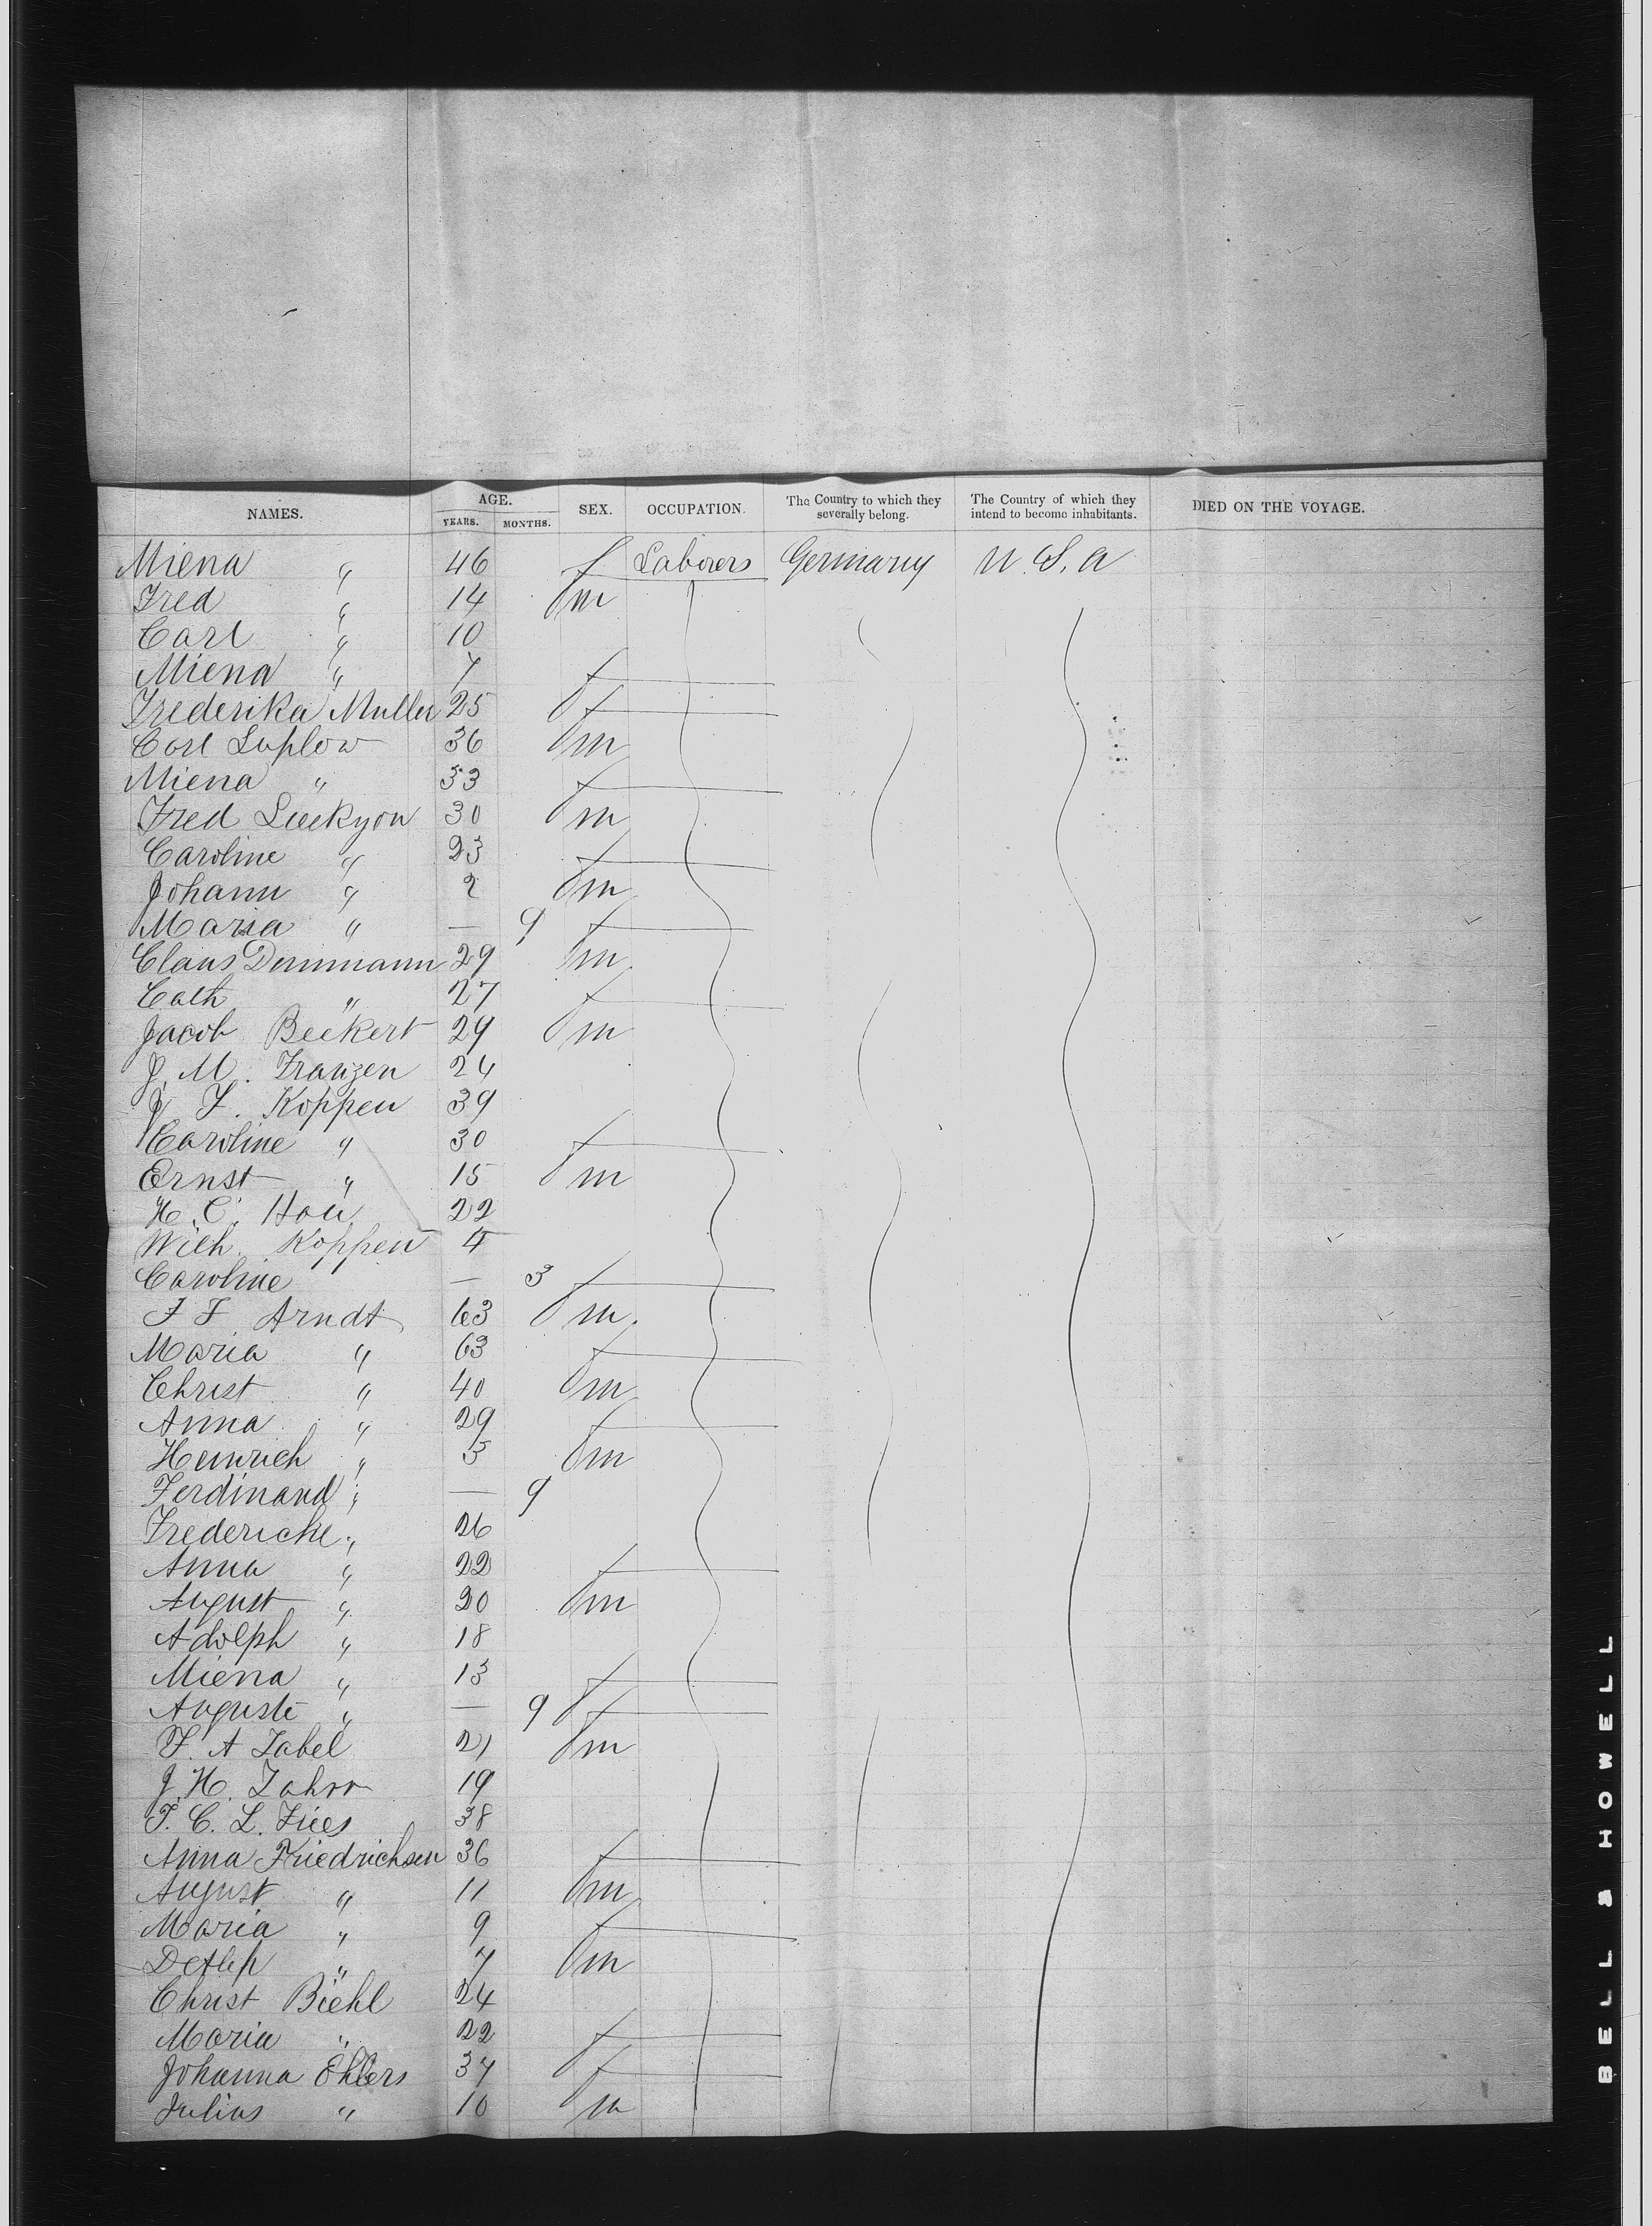 NAMES. AGE. YEARS. MONTHS. SEX. OCCUPATION. The Country to which they severally belong. The Country of which they intend to become inhabitants. DIED ON THE VOYAGE.
Miena " 46 f Laborers Germany U. S. a
Fred " 14 m
Carl " 10
Miena " 7 f
Frederika Muller 25 f
Carl Luplow 36 m
Miena " 33 f
Fred Lueckyon 30 m
Caroline " 23 f
Johann " 2 m
Maria " — 9 f
Claus Demmann 29 m
Cath " 27 f
Jacob Beckert 29 m
J. M. Franzen 24
J F. Koppen 39
Caroline " 30 f
Ernst " 15 m
H. C. Hou 22
Wilh. Koppen 4
Caroline — 3 f
F F Arndt 63 m
Maria " 63 f
Christ " 40 m
Anna " 29 f
Heinrich " 5 m
Ferdinand " — 9
Fredericke " 26
Anna " 22 f
August " 20 m
Adolph " 18
Miena " 13 f
Auguste " — 9 f
F. A Zabel 21 m
J. H. Zahrr 19
F. C. L. Fries 38
Anna Friedrichsen 36 f
August " 11 m
Maria " 9 f
Detlep " 7 m
Christ Biehl 24
Maria " 22 f
Johanna Ehlers 37 f
Julius " 10 m
BELL & HOWELL